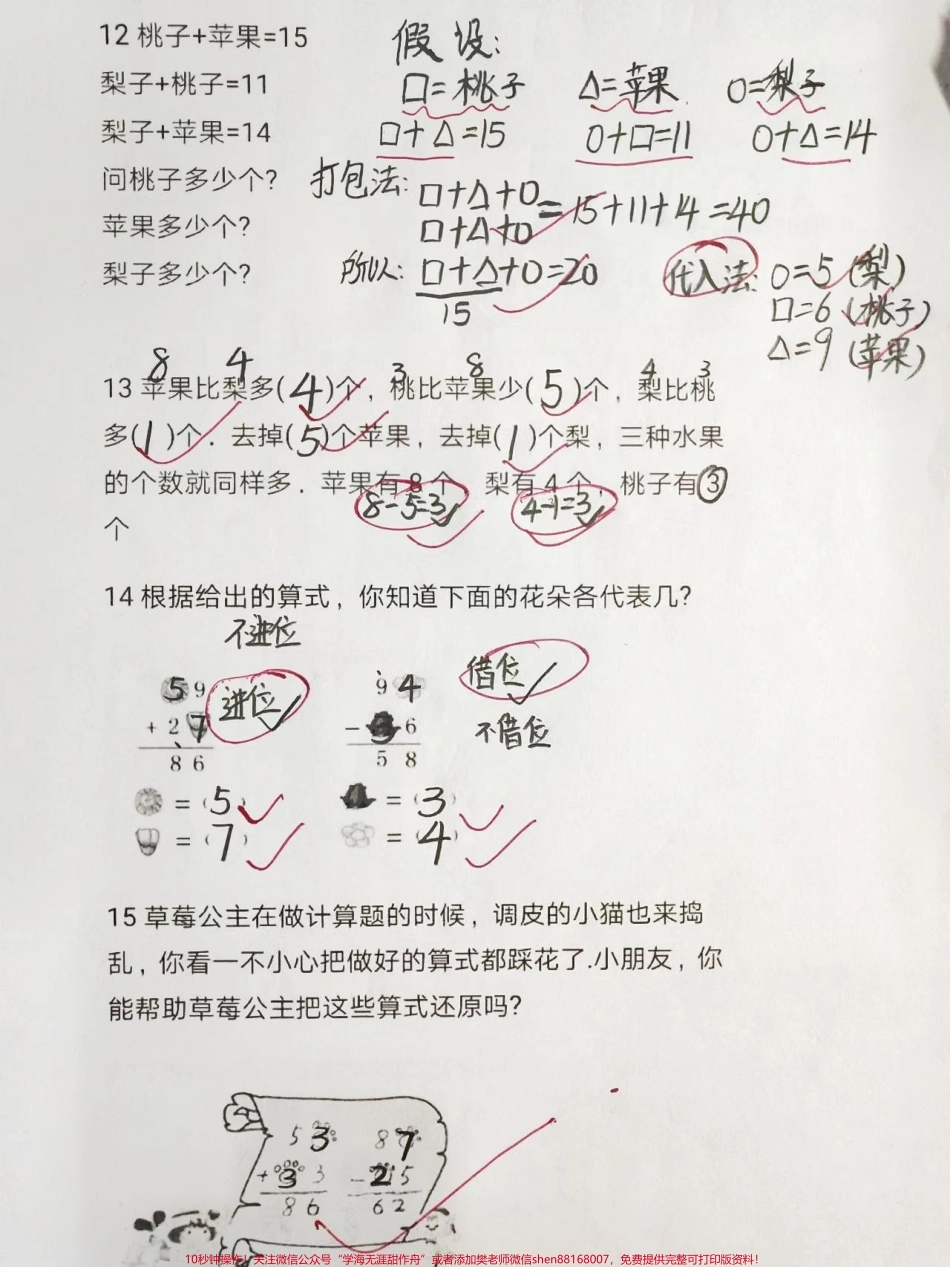 12 桃子+苹果=15 假设:
梨子+桃子=11 □=桃子 △=苹果 ○=梨子
梨子+苹果=14 □+△=15 ○+□=11 ○+△=14
问桃子多少个? 打包法: □+△+○
苹果多少个? □+△+○ =15+11+14=40
梨子多少个? 所以: □+△+○=20 代入法: ○=5 (梨)
15 □=6 (桃子)
△=9 (苹果)
8 4 3 8 4 3
13 苹果比梨多(4)个,桃比苹果少(5)个,梨比桃
多(1)个.去掉(5)个苹果,去掉(1)个梨,三种水果
的个数就同样多.苹果有8个,梨有4个,桃子有③
8-5=3 4-1=3
个
14 根据给出的算式,你知道下面的花朵各代表几?
不进位
5 9 进位 9 4 借位
+ 2 7 - 3 6 不借位
8 6 5 8
= (5) = (3)
= (7) = (4)
15 草莓公主在做计算题的时候,调皮的小猫也来捣
乱,你看一不小心把做好的算式都踩花了.小朋友,你
能帮助草莓公主把这些算式还原吗?
5 3 8 7
+ 3 3 - 2 5
8 6 6 2
10秒钟操作!关注微信公众号“学海无涯甜作舟”或者添加樊老师微信shen88168007,免费提供完整可打印版资料!